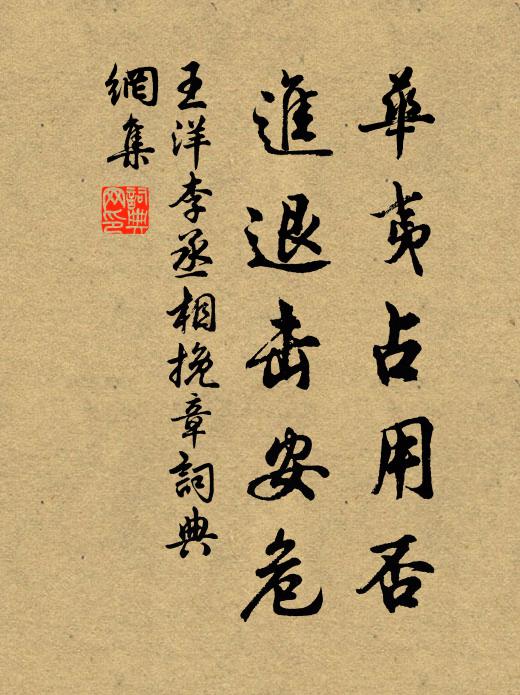 華夷占用否
進退击安危
王洋李丞相挽章詞典
網集
詞典
网印